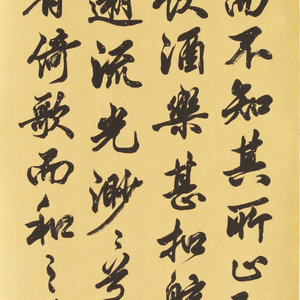 而不知其所止
飲酒樂甚扣舷
遡流光渺〻兮
者倚歌而和之